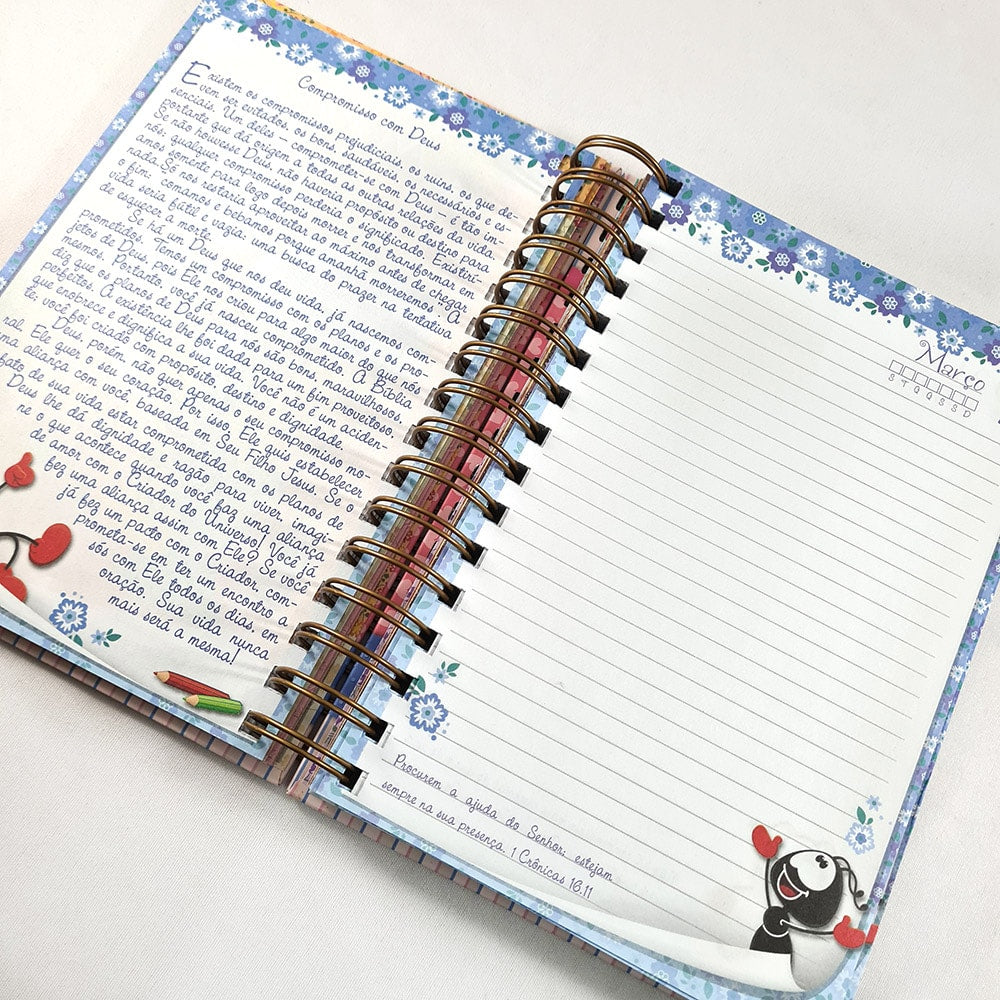 Compromisso com Deus
Existem os compromissos prejudiciais, os ruins, os que de-
vem ser evitados, os bons, saudáveis, os necessários e es-
senciais. Um deles - comprometer-se com Deus - é tão im-
portante que dá origem a todas as outras relações da vida.
Se não houvesse Deus, não haveria propósito ou destino para
nós; qualquer compromisso perderia o significado. Existirí-
amos somente para logo depois morrer e nos transformar em
nada. Só nos restaria aproveitar ao máximo antes de chegar
o fim: "comamos e bebamos porque amanhã morreremos". A
vida seria fútil e vazia; uma busca do prazer na tentativa
esquecer a morte.
Se há um Deus que nos deu vida, já nascemos com-
prometidos. Temos um compromisso com os planos e os pro-
jetos de Deus, pois Ele nos criou para algo maior do que nós
mesmos. Portanto, você já nasceu comprometido. A Bíblia
diz que os planos de Deus para nós são bons, maravilhosos,
perfeitos. A existência lhe foi dada para um fim proveitoso,
que enobrece e dignifica a sua vida. Você não é um aciden-
te, você foi criado com propósito, destino e dignidade.
Deus, porém, não quer apenas o seu compromisso mo-
ral. Ele quer o seu coração. Por isso, Ele quis estabelecer
ma aliança com você, baseada em Seu Filho Jesus. Se o
fato de sua vida estar comprometida com os planos de
Deus lhe dá dignidade e razão para viver, imagi-
ne o que acontece quando você faz uma aliança
de amor com o Criador do Universo! Você já
fez uma aliança assim com Ele? Se você
já fez um pacto com o Criador, com-
prometa-se em ter um encontro a
sós com Ele todos os dias, em
oração. Sua vida nunca
mais será a mesma!
Março
S T Q Q S S D
Procurem a ajuda do Senhor; estejam
sempre na sua presença. 1 Crônicas 16.11